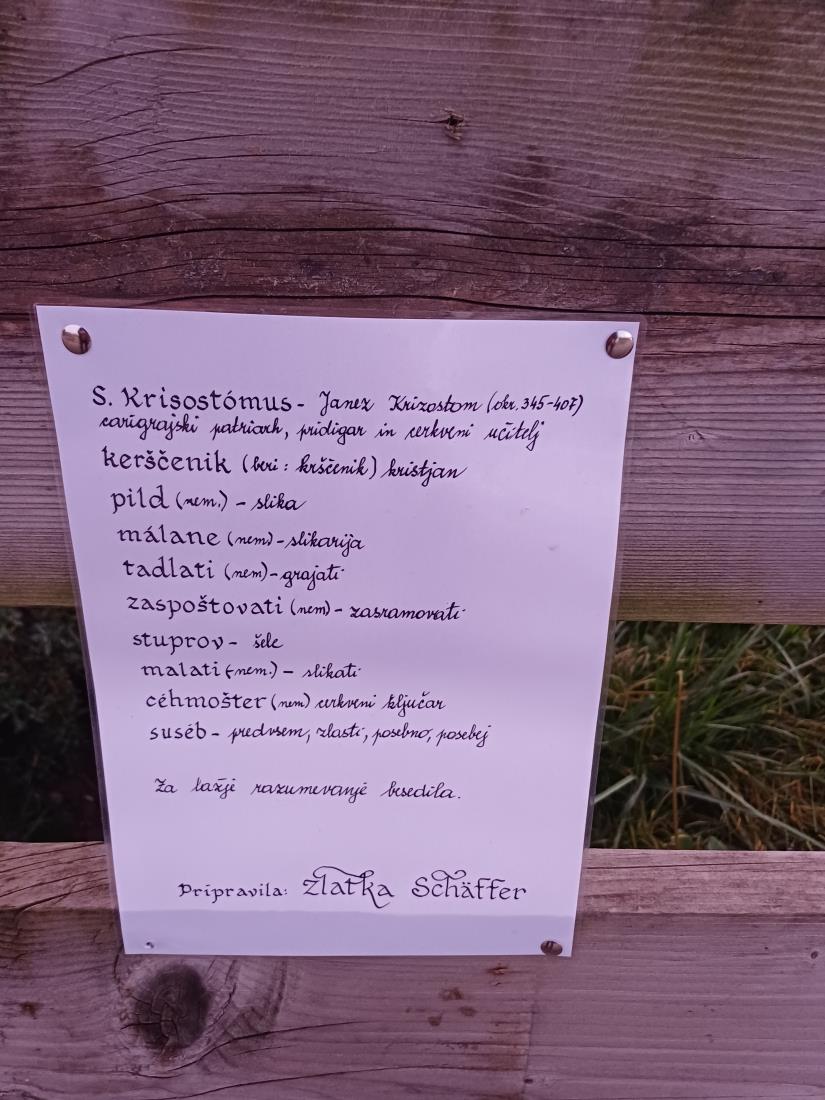 S. Krisostómus - Janez Krizostom (okr. 345-407)
carigrajski patriarh, pridigar in cerkveni učitelj
kerščenik (beri: krščenik) kristjan
pild (nem.) - slika
málane (nem) - slikarija
tadlati (nem) - grajati
zaspoštovati (nem) - zasramovati
stuprov - šele
malati (nem.) - slikati
céhmošter (nem) cerkveni ključar
suséb - predvsem, zlasti, posebno, posebej
Za lažje razumevanje besedila.
Pripravila: Zlatka Schäffer